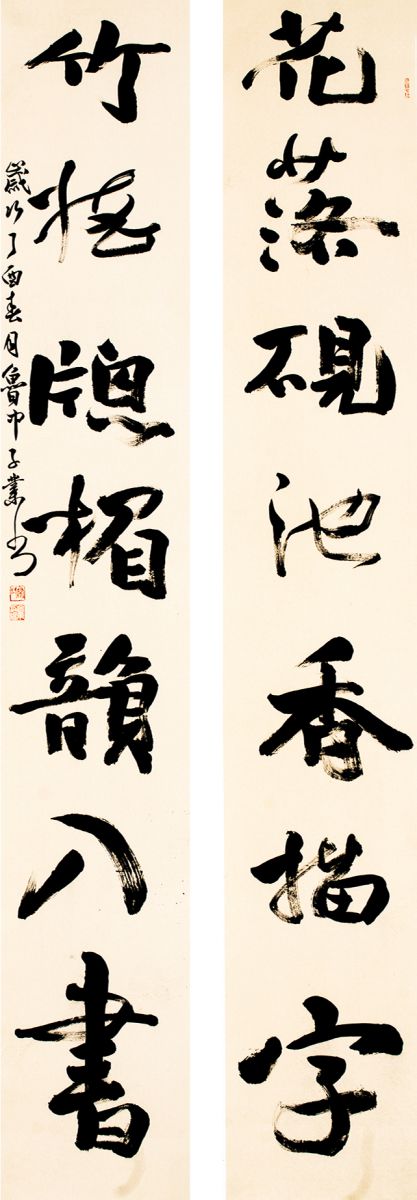 花落硯池香描字
竹搖牕楣韻入書
歲次丁酉春月魯中子業书